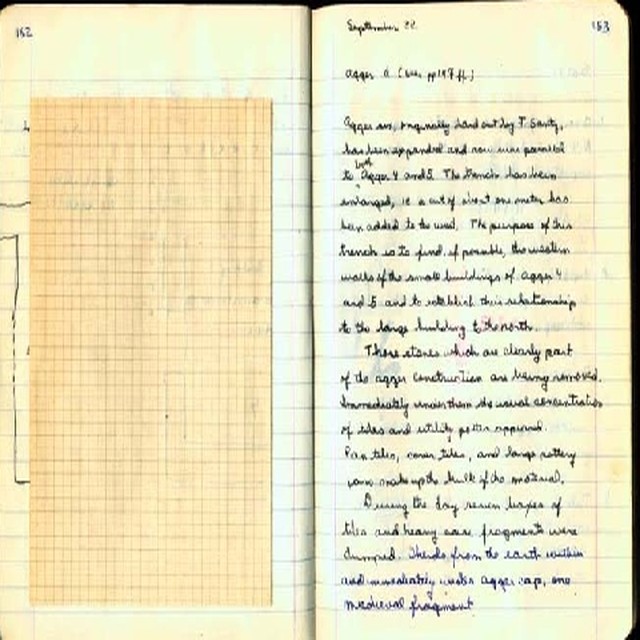 162
153
September 22
Agger 6 (see pp 147 ff.)
Agger six, originally laid out by T. Santy,
has been expanded and now runs parallel
to both Agger 4 and 5. The trench has been
enlarged, i.e. a cut of about one meter has
been added to the west. The purpose of this
trench is to find, if possible, the western
walls of the small buildings of agger 4
and 5 and to establish their relationship
to the large building to the north.
Those stones which are clearly part
of the agger construction are being removed.
Immediately under them the usual concentration
of tiles and utility pottery appeared.
Pan tiles, cover tiles, and large pottery
jars make up the bulk of the material.
During the day seven boxes of
tiles and heavy ware fragments were
dumped. Sherds from the earth within
and immediately under agger cap, one
medieval fragment